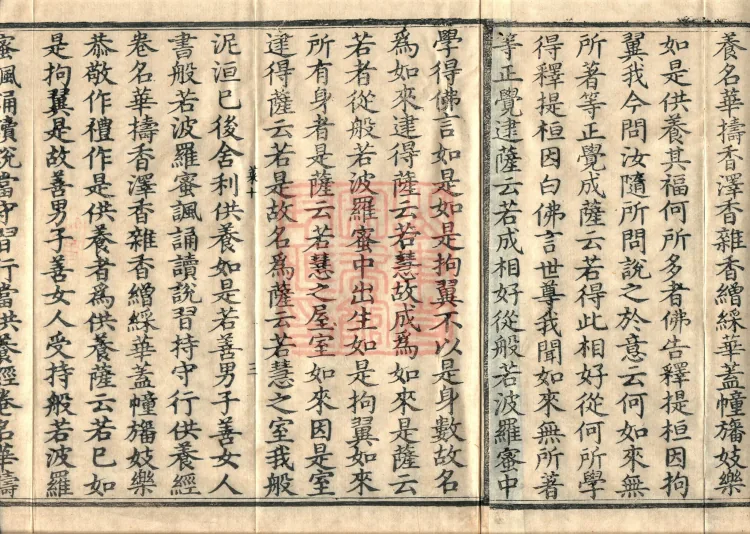 養名華擣香澤香雜香繒綵華蓋幢旛妓樂
如是供養其福何所多者佛告釋提桓因拘
翼我今問汝隨所問說之於意云何如來無
所著等正覺成薩云若得此相好從何所學
得釋提桓因白佛言世尊我聞如來無所著
等正覺逮薩云若成相好從般若波羅蜜中
學得佛言如是如是拘翼不以是身數故名
為如來逮得薩云若慧故成為如來是薩云
若者從般若波羅蜜中出生如是拘翼如來
所有身者是薩云若慧之屋室如來因是室
逮得薩云若是故名為薩云若慧之室我般
泥洹已後舍利供養如是若善男子善女人
書般若波羅蜜諷誦讀說習持守行供養經
卷名華擣香澤香雜香繒綵華蓋幢旛妓樂
恭敬作禮作是供養者為供養薩云若已如
是拘翼是故善男子善女人受持般若波羅
蜜諷誦讀說當守習行當供養經卷名華擣